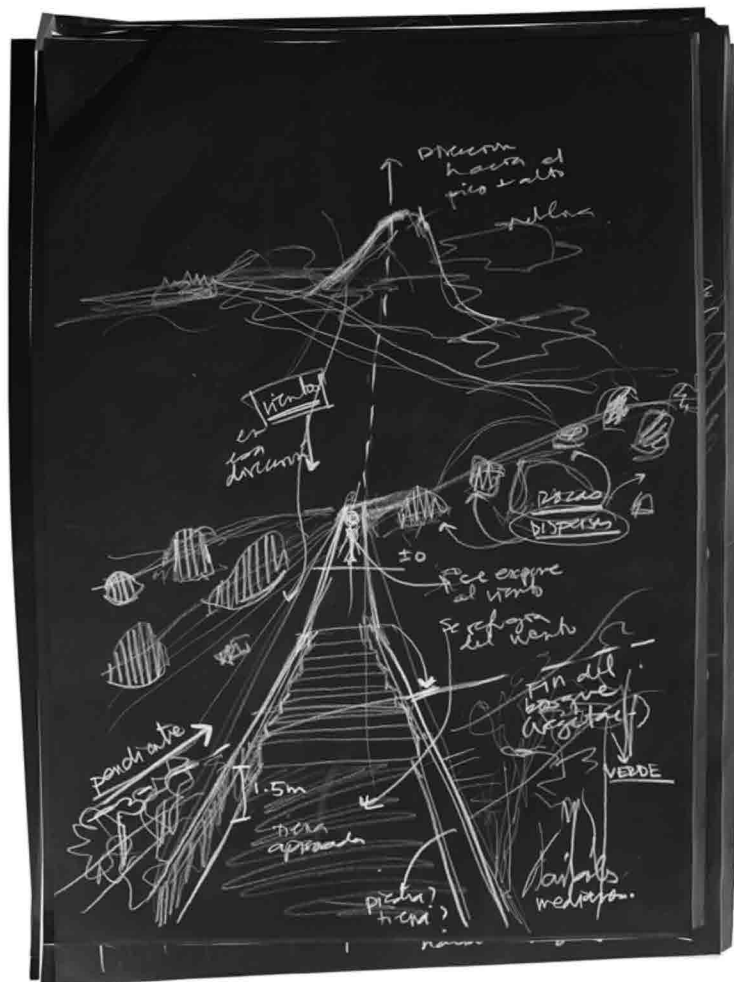 Dirección
hacia el
pico + alto
neblina.
vientos
en
esa
dirección
Rocas
Dispersas
±0
se expone
al viento
se refugia
del viento
Fin del
bosque
pendiente
VERDE
1.5m
tierra
apisonada
piedra?
tierra?
medianos.